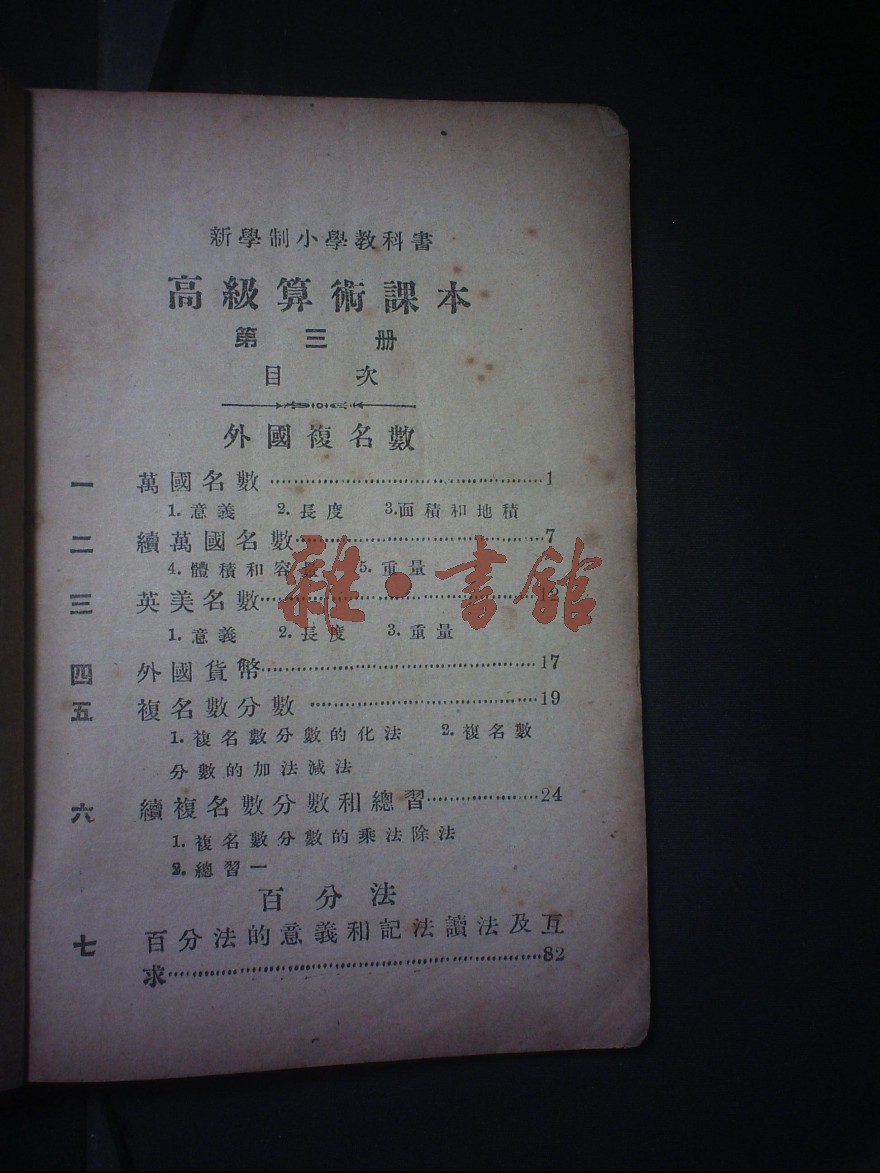 新學制小學教科書
高級算術課本
第三册
目次
外國複名數
一 萬國名數……1
1.意義 2.長度 3.面積和地積
二 續萬國名數……7
4.體積和容量 5.重量
雜·書館
三 英美名數……12
1.意義 2.長度 3.重量
四 外國貨幣……17
五 複名數分數……19
1.複名數分數的化法 2.複名數
分數的加法減法
六 續複名數分數和總習……24
1.複名數分數的乘法除法
2.總習一
百分法
七 百分法的意義和記法讀法及互
求……82